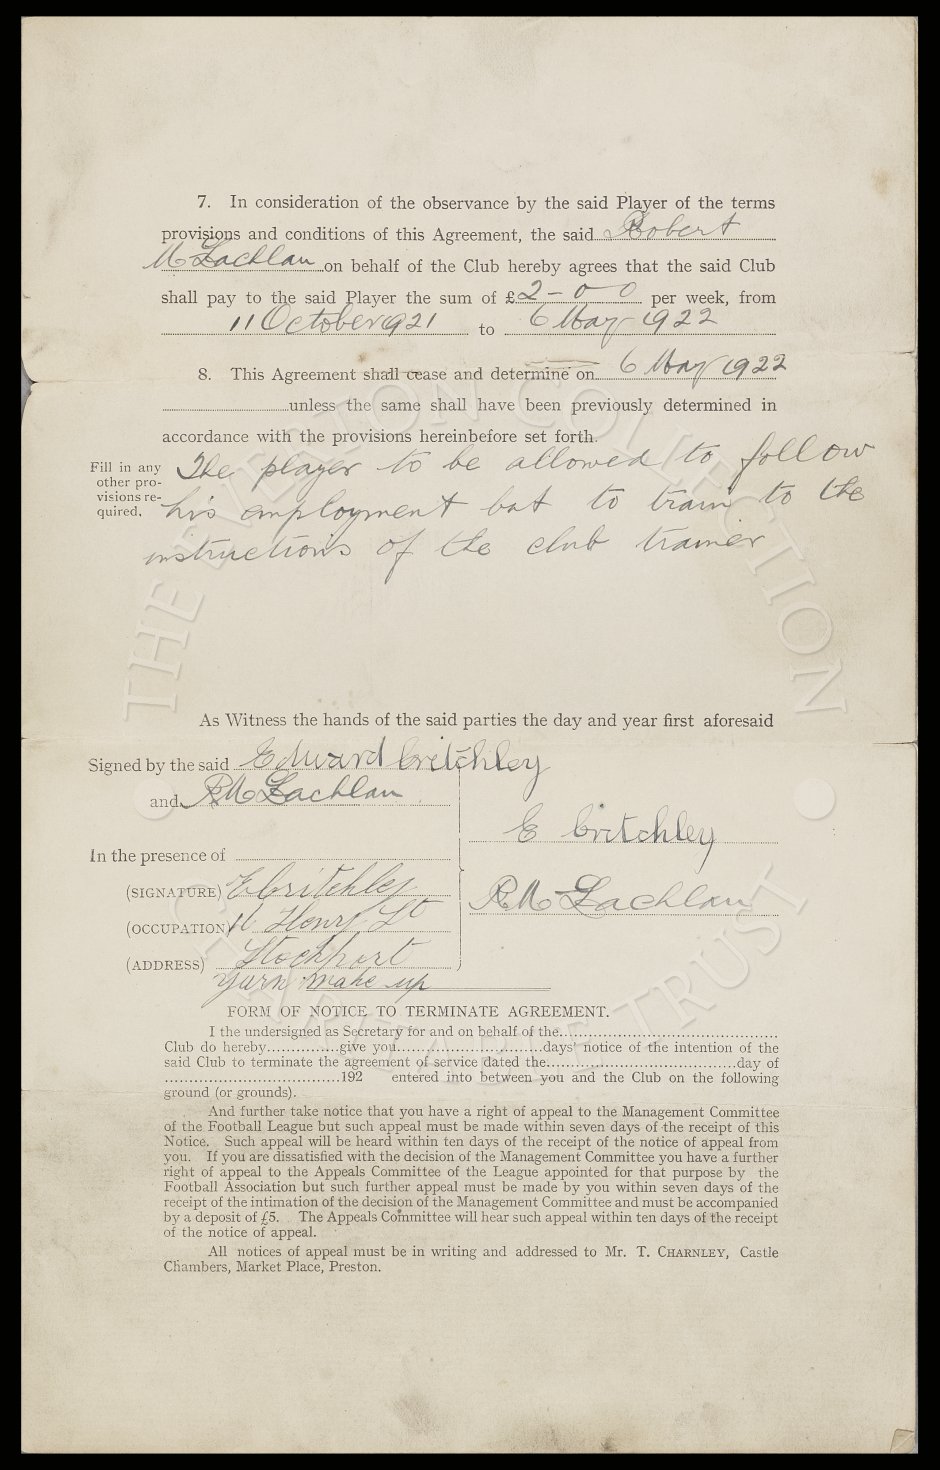 7. In consideration of the observance by the said Player of the terms
provisions and conditions of this Agreement, the said Robert
McLachlan on behalf of the Club hereby agrees that the said Club
shall pay to the said Player the sum of £2-0 0 per week, from
11 October 1921 to 6 May 1922
8. This Agreement shall cease and determine on 6 May 1922
unless the same shall have been previously determined in
accordance with the provisions hereinbefore set forth.
Fill in any
other pro-
visions re-
quired.
The player to be allowed to follow
his employment but to train to the
instructions of the club trainer
As Witness the hands of the said parties the day and year first aforesaid
Signed by the said Edward Critchley
and R McLachlan
E Critchley
In the presence of
(SIGNATURE) E Critchley
R McLachlan
(OCCUPATION) 11 Henry St
(ADDRESS) Stockport
Yarn make up
FORM OF NOTICE TO TERMINATE AGREEMENT.
I the undersigned as Secretary for and on behalf of the
Club do hereby give you days' notice of the intention of the
said Club to terminate the agreement of service dated the day of
192 entered into between you and the Club on the following
ground (or grounds).
And further take notice that you have a right of appeal to the Management Committee
of the Football League but such appeal must be made within seven days of the receipt of this
Notice. Such appeal will be heard within ten days of the receipt of the notice of appeal from
you. If you are dissatisfied with the decision of the Management Committee you have a further
right of appeal to the Appeals Committee of the League appointed for that purpose by the
Football Association but such further appeal must be made by you within seven days of the
receipt of the intimation of the decision of the Management Committee and must be accompanied
by a deposit of £5. The Appeals Committee will hear such appeal within ten days of the receipt
of the notice of appeal.
All notices of appeal must be in writing and addressed to Mr. T. CHARNLEY, Castle
Chambers, Market Place, Preston.
THE EVERTON COLLECTION
CHARITABLE TRUST